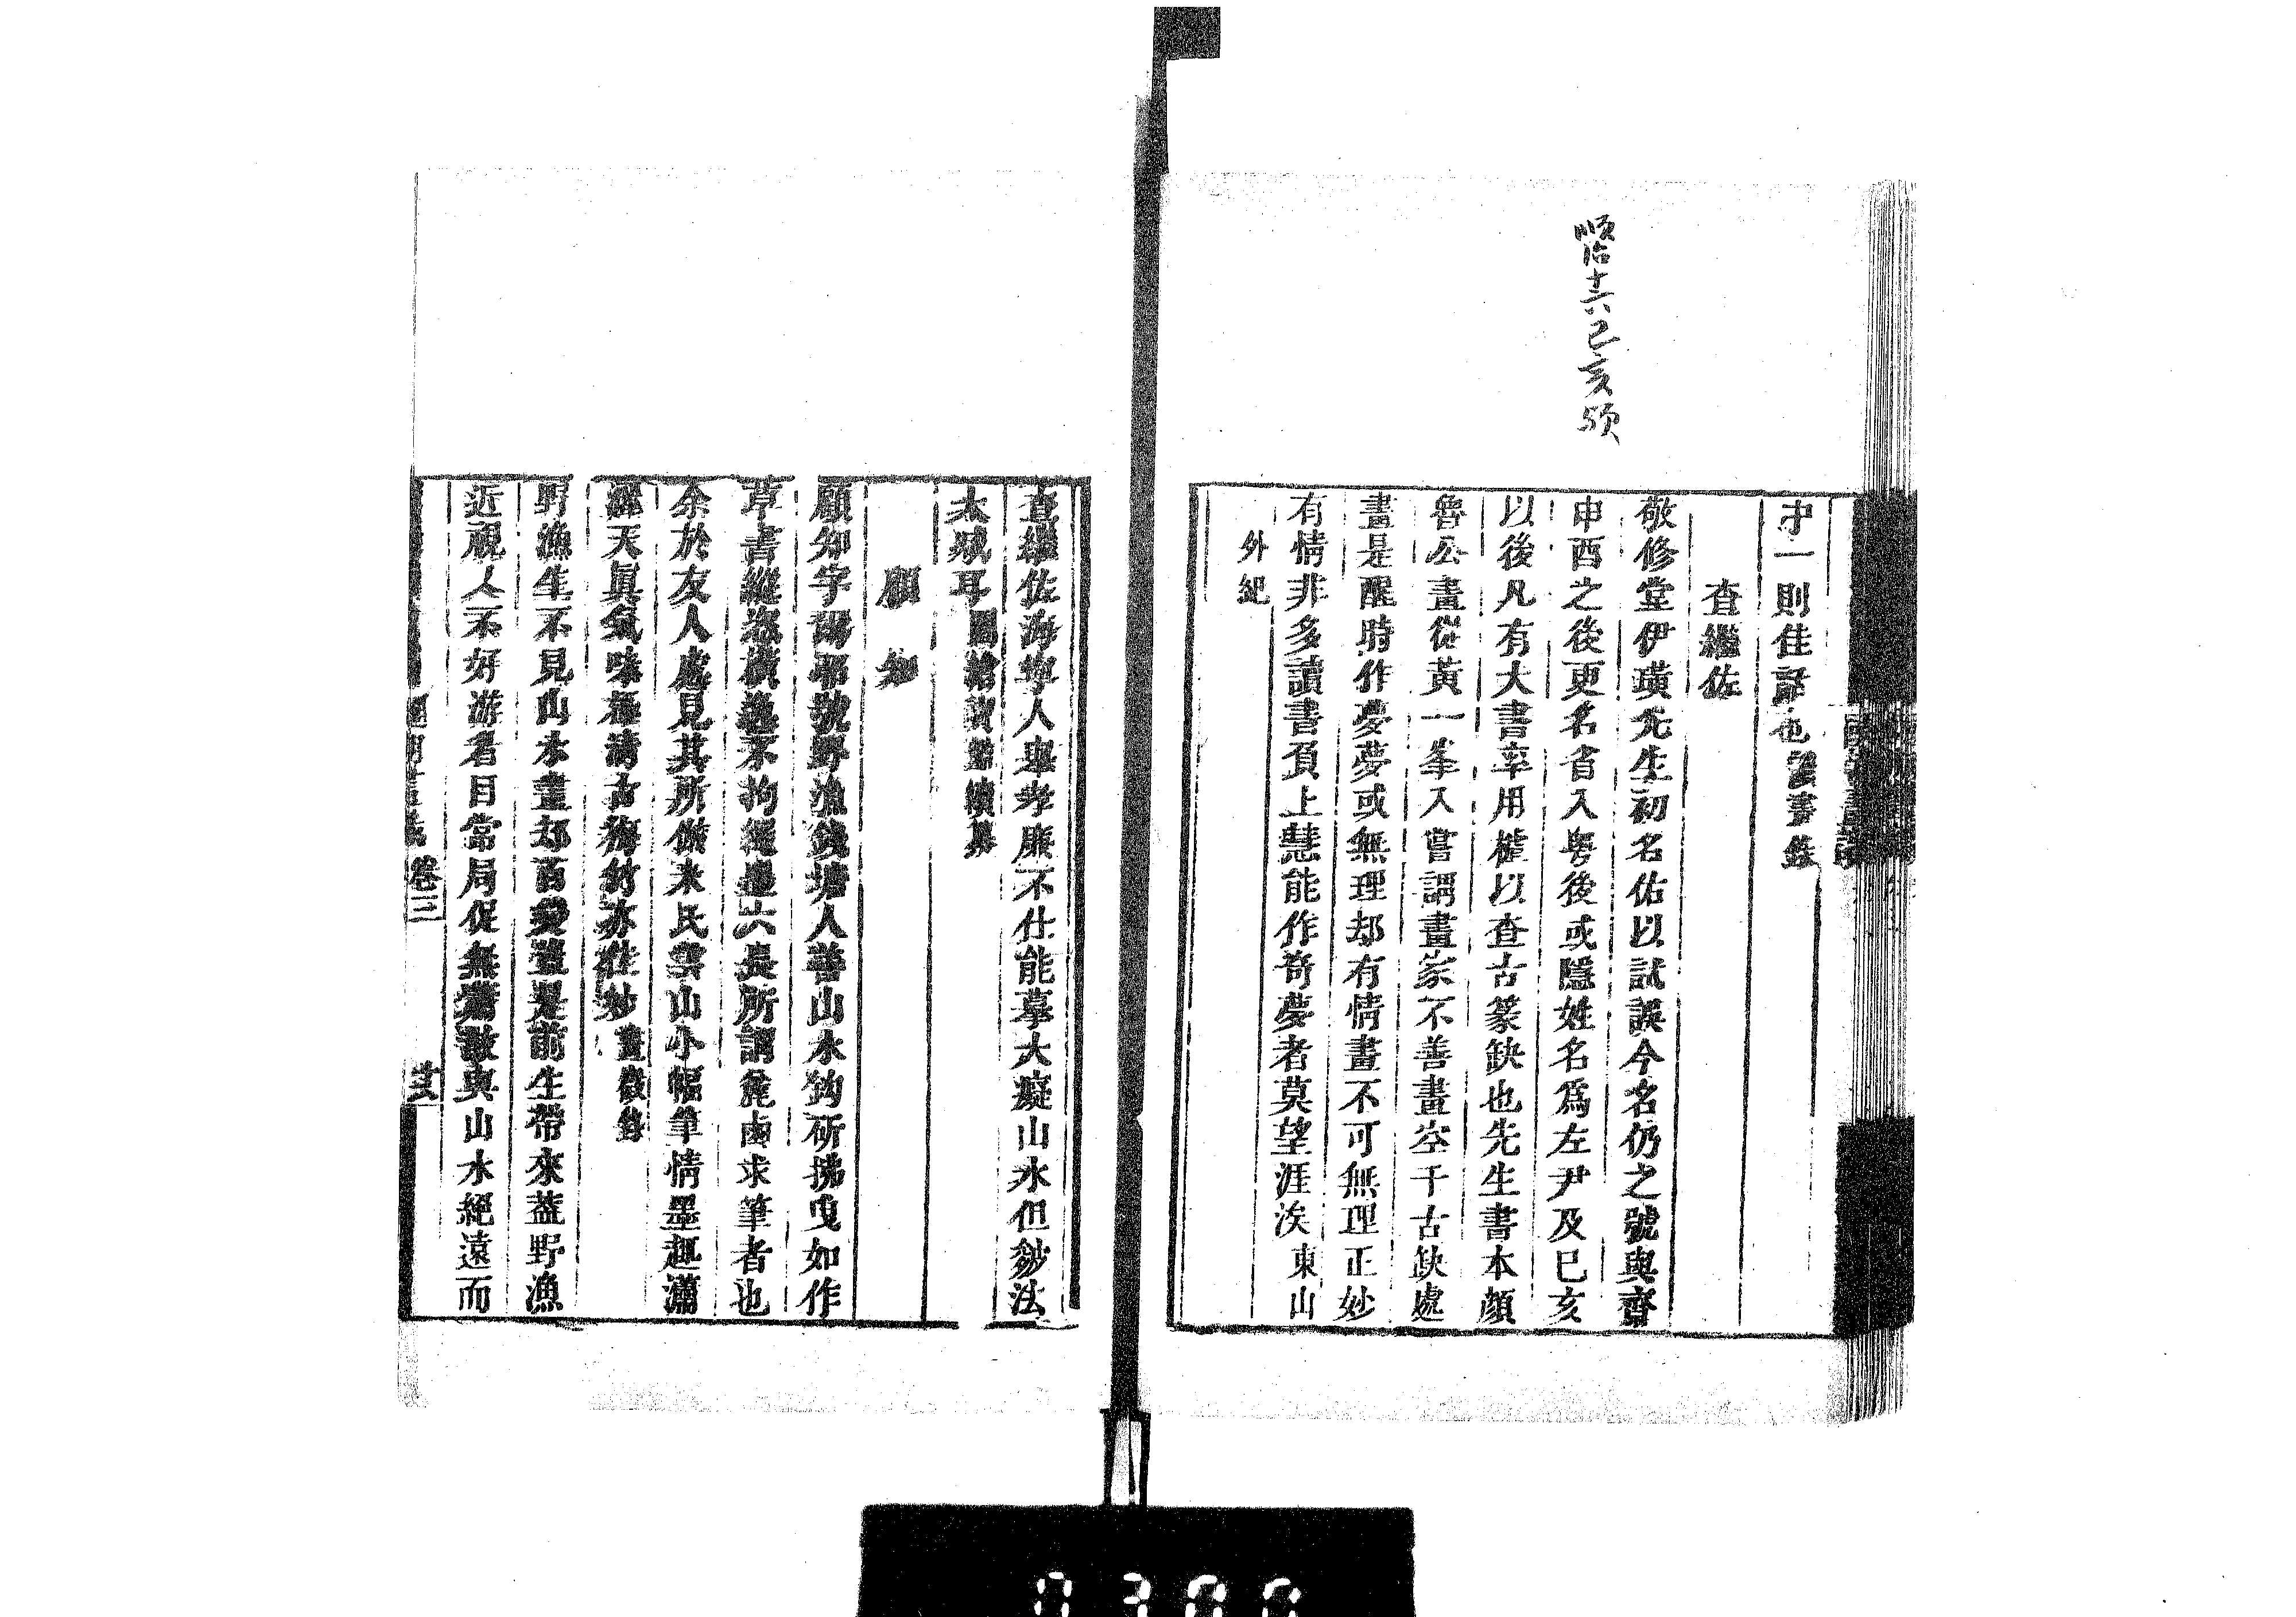 順治十六己亥頃
才一則佳話也讀畫錄
查繼佐
敬修堂伊璜先生初名佑以試誤今名仍之號與齋
申酉之後更名省入粵後或隱姓名為左尹及巳亥
以後凡有大書率用樝以查古篆缺也先生書本顏
魯公畫從黃一峯入嘗謂畫家不善畫空千古缺處
畫是醒時作夢夢或無理却有情畫不可無理正妙
有情非多讀書負上慧能作奇夢者莫望涯涘東山
外紀
查繼佐海寧人舉孝廉不仕能摹大癡山水但皴法
太賦耳圖繪寶鑑續纂
顧知
顧知字爾昭號野漁錢塘人善山水鈎斫拂曳如作
草書縱恣橫逸不拘繩墨六長所謂麁鹵求筆者也
余於友人處見其所倣米氏雲山小幅筆情墨趣瀟
灑天真氣味極清古梅竹亦佳妙畫徵錄
野漁生不見山水畫却酉是前生帶來蓋野漁
近視人不好游著目當局促無蕭散與山水絕遠而
卷三